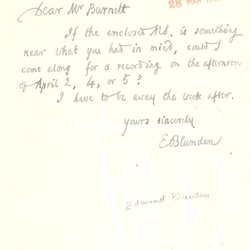 28 MAR
Dear Mr Burnett
If the enclosed MS. is something
near what you had in mind, could I
come along for a recording on the afternoon
of April 2, 4, or 5?
I have to be away the week after.
Yours sincerely
E Blunden
Edmund Blunden